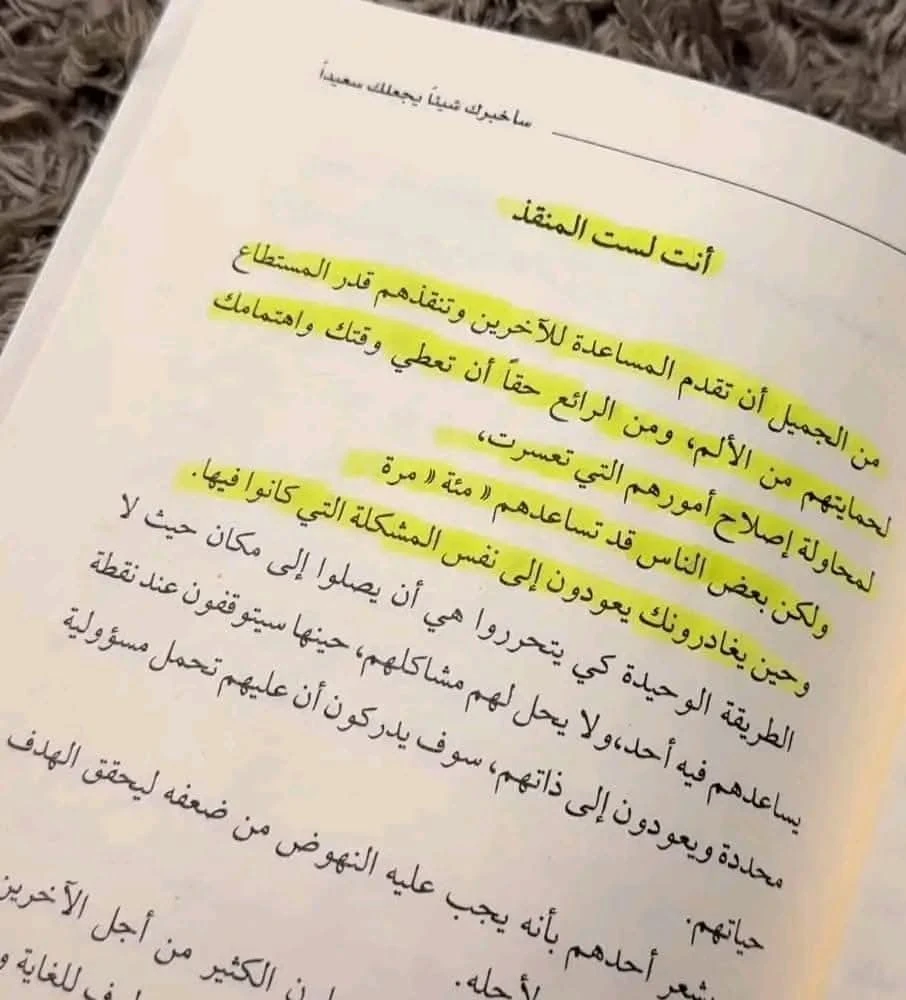 سأخبرك شيئاً يجعلك سعيداً
أنت لست المنقذ
من الجميل أن تقدم المساعدة للآخرين وتنقذهم قدر المستطاع
لحمايتهم من الألم، ومن الرائع حقاً أن تعطي وقتك واهتمامك
لمحاولة إصلاح أمورهم التي تعسرت،
ولكن بعض الناس قد تساعدهم « مئة « مرة
وحين يغادرونك يعودون إلى نفس المشكلة التي كانوا فيها.
الطريقة الوحيدة كي يتحرروا هي أن يصلوا إلى مكان حيث لا
يساعدهم فيه أحد،ولا يحل لهم مشاكلهم، حينها سيتوقفون عند نقطة
محددة ويعودون إلى ذاتهم، سوف يدركون أن عليهم تحمل مسؤولية
حياتهم.
أحدهم بأنه يجب عليه النهوض من ضعفه ليحقق الهدف
لأجله.
الكثير من أجل الآخرين
للغاية